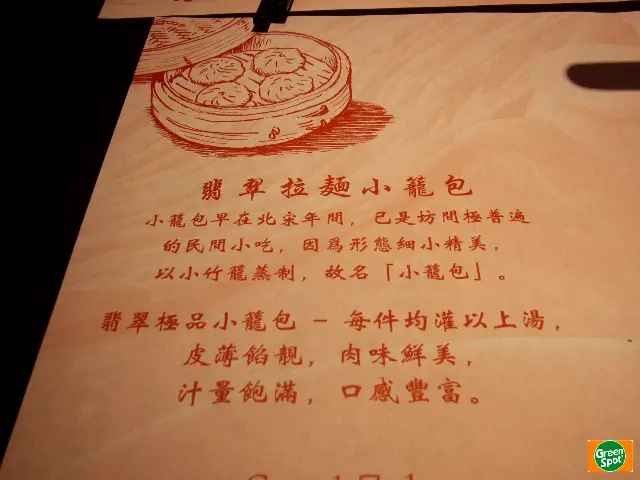 翡翠拉麵小籠包
小籠包早在北宋年間，已是坊間極普遍
的民間小吃，因爲形態細小精美，
以小竹籠蒸制，故名「小籠包」。
翡翠極品小籠包 – 每件均灌以上湯，
皮薄餡靚，肉味鮮美，
汁量飽滿，口感豐富。
Green
Spot